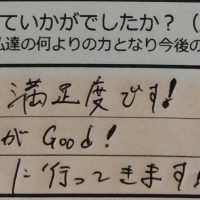 ていかがでしたか？（
ム達の何よりの力となり今後の
満足度です！
が Good！
に行ってきます！